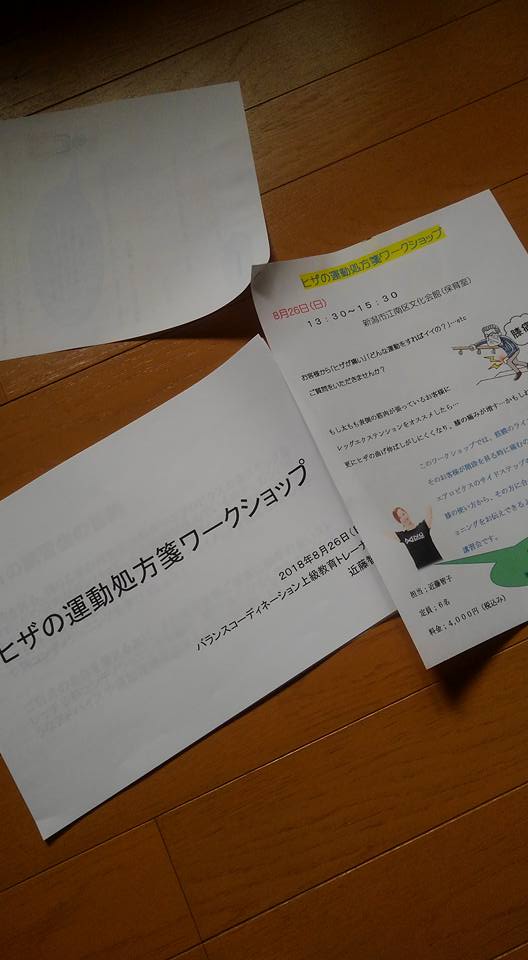 ヒザの運動処方箋ワークショップ
8月26日(日)
13:30～15:30
新潟市江南区文化会館(保育室)
お客様から「ヒザが痛い」「どんな運動をすればイイの?」…etc
ご質問をいただきませんか?
もし太もも表側の筋肉が張っているお客様に
レッグエクステンションをオススメしたら…
更にヒザの曲げ伸ばしがしにくくなり、膝の痛みが増す…かもしれ
このワークショップでは、筋膜のライン
そのお客様が階段を昇る時に痛むの
エアロビクスのサイドステップの
膝の使い方から、その方に合
ョニングをお伝えできるよ
講習会です。
担当:近藤智子
定員:6名
料金:4,000円(税込み)
膝痛
ヒザの運動処方箋ワークショップ
2018年8月26日(
バランスコーディネーション上級教育トレーナ
近藤